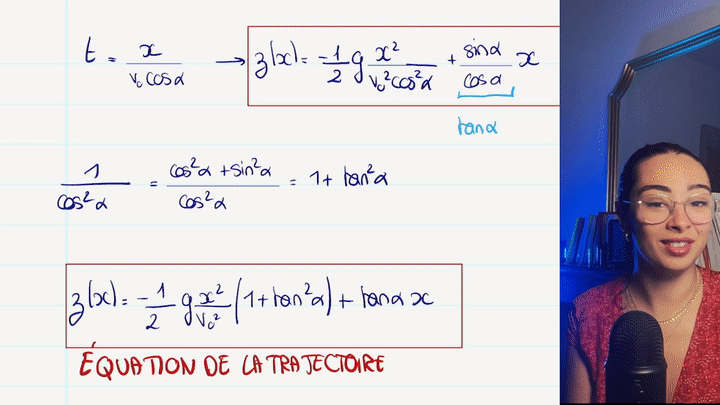 t = x / (v₀ cosα) → z(x) = -1/2 g x² / (v₀² cos²α) + sinα / cosα x
tanα
1 / cos²α = (cos²α + sin²α) / cos²α = 1 + tan²α
z(x) = -1/2 g x² / v₀² (1 + tan²α) + tanα x
ÉQUATION DE LA TRAJECTOIRE